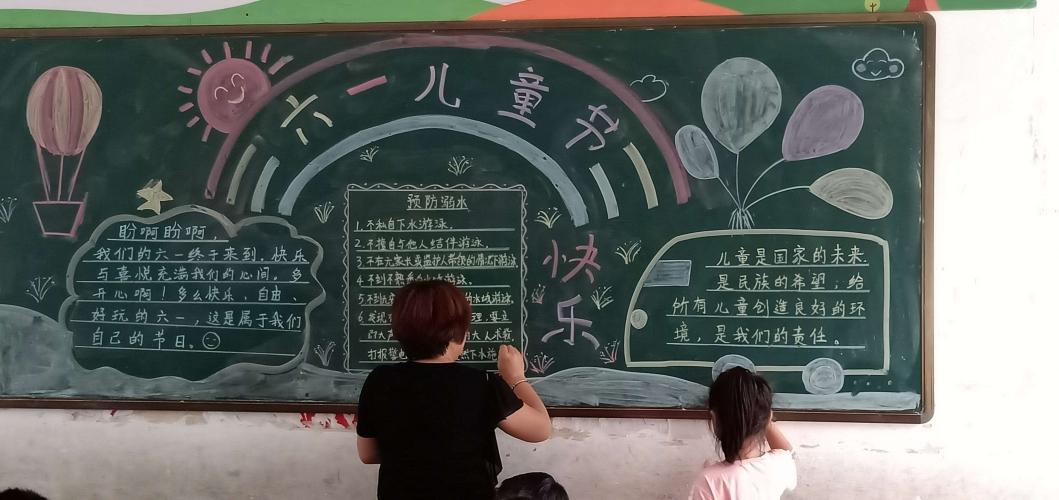 六一儿童节
快乐
盼啊盼啊，
我们的六一终于来到，快乐
与喜悦充满我们的心间。多
开心啊！多么快乐、自由、
好玩的六一，这是属于我们
自己的节日。
预防溺水
1.不私自下水游泳。
2.不擅自与他人结伴游泳。
3.不在无家长或监护人带领的情况下游泳
4.不到不熟悉的水域游泳、
5.不到 的水域游泳.
6.发现 理，要立
大人求救，
打报警 下水施
儿童是国家的未来
是民族的希望；给
所有儿童创造良好的环
境，是我们的责任。